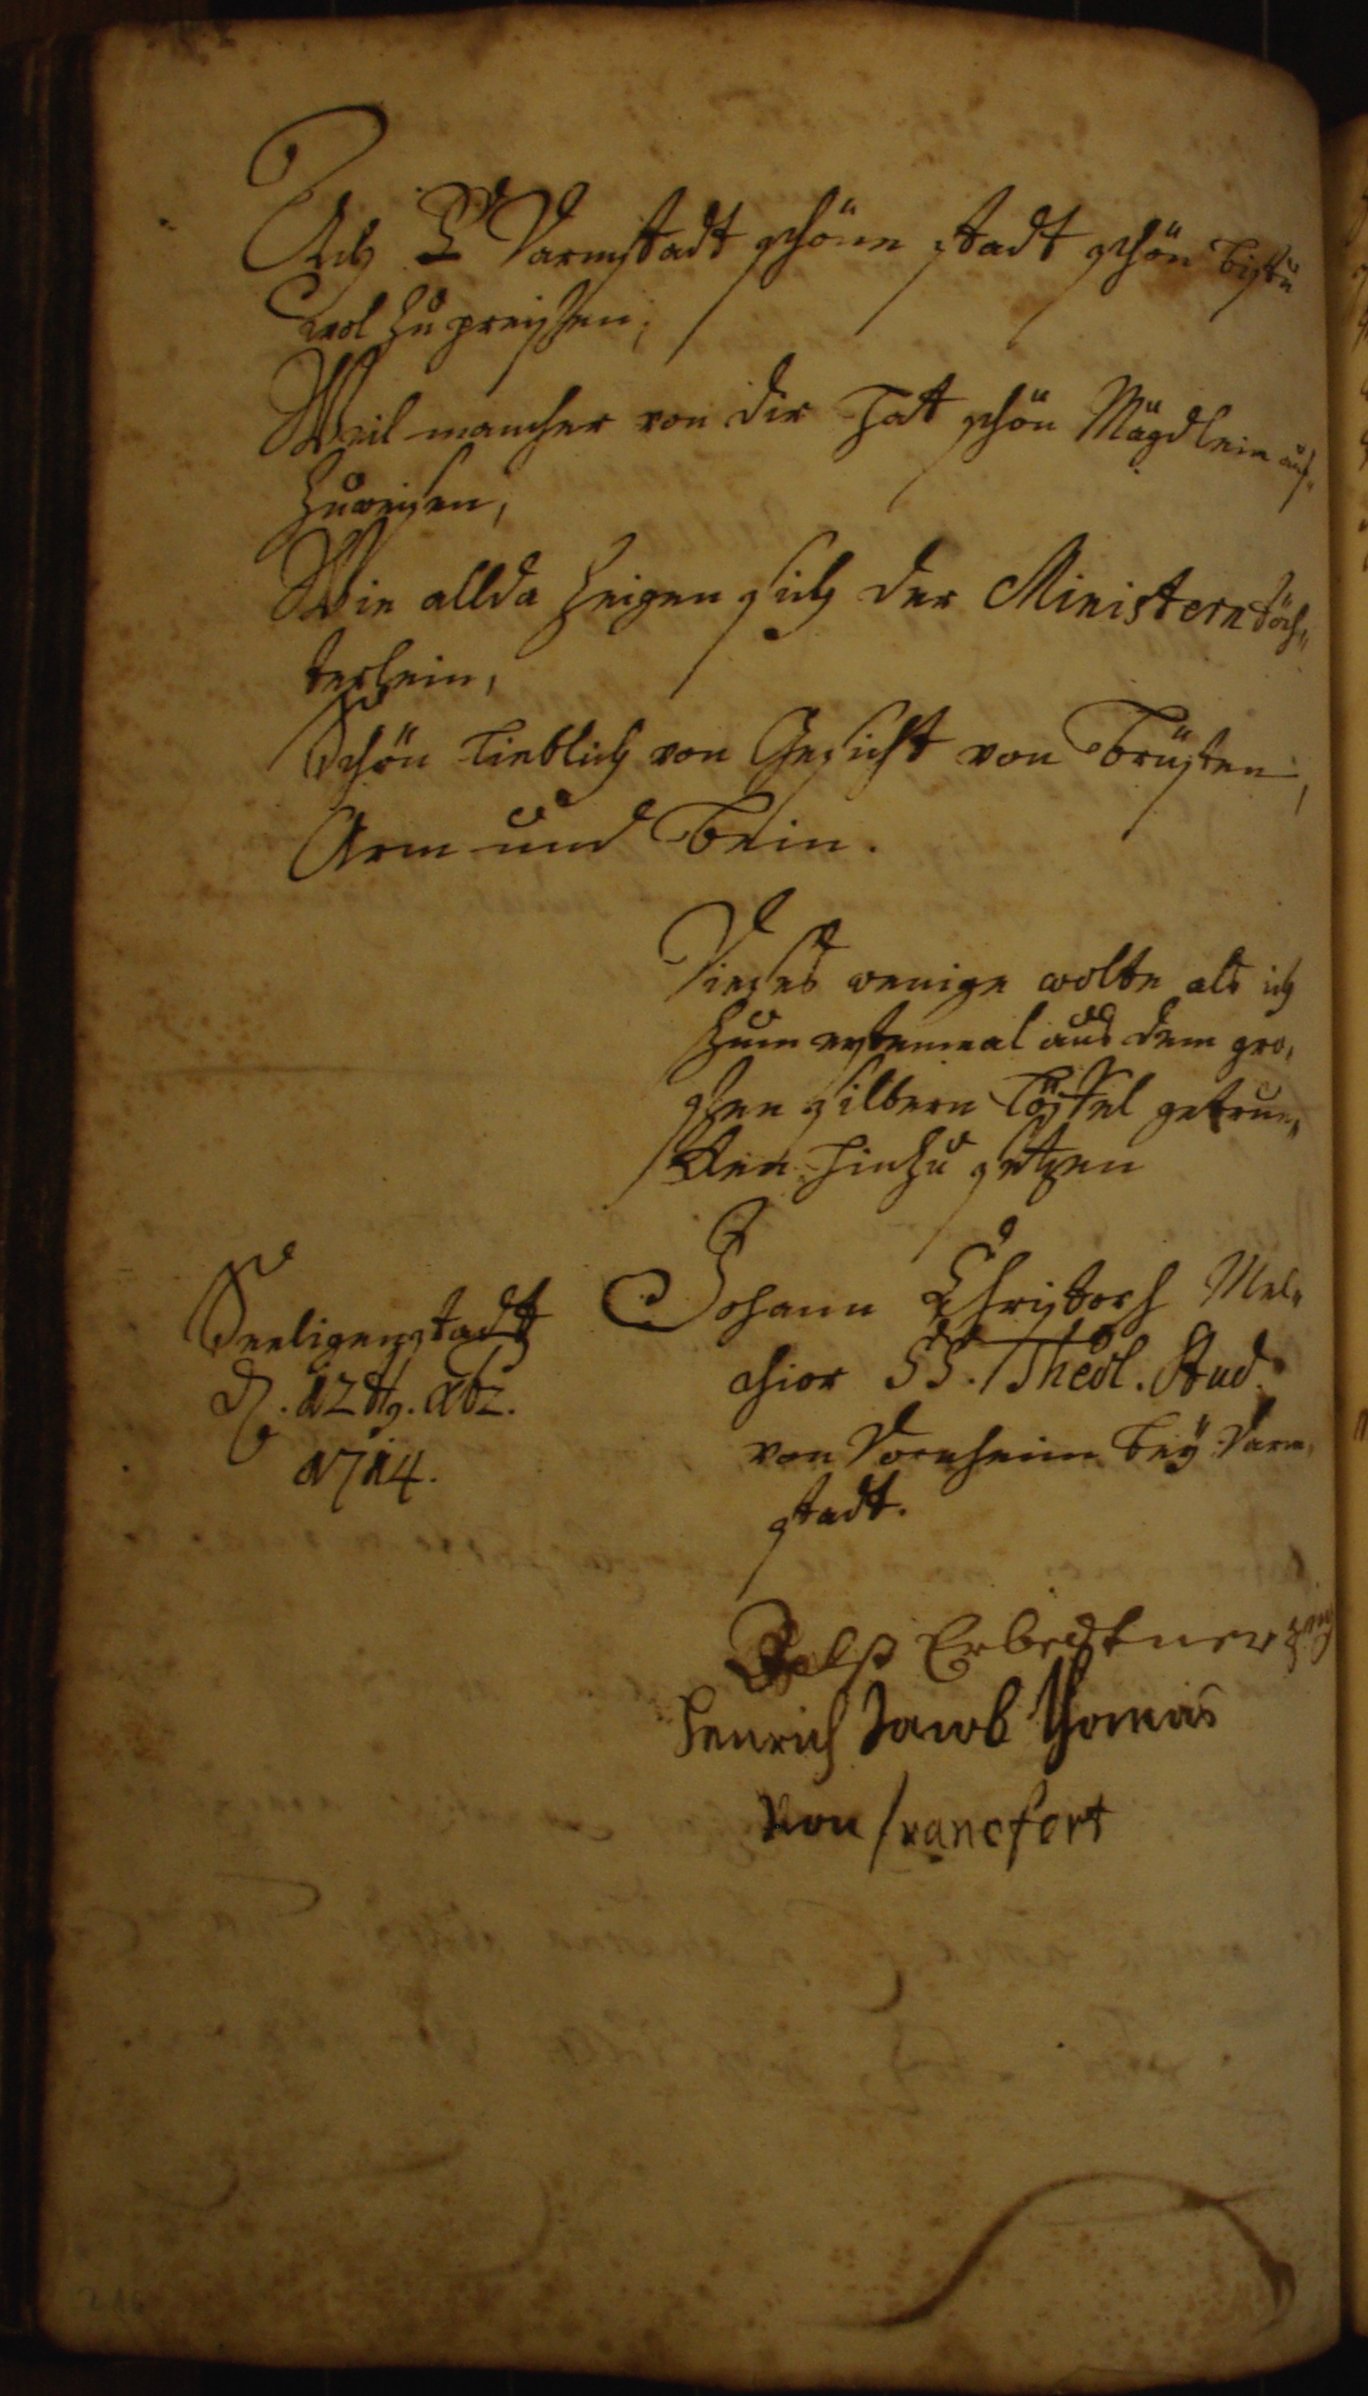 Ach Darmstadt schöne stadt schön bistu
wol zu preissen;
Weil mancher von dir hatt schön Mägdlein auf-
zuweisen,
Wie allda zeigen sich der Ministern Töch-
terlein,
Schön lieblich von Gesicht von Brüsten,
Arm und Bein.
Dieses wenige wolte als ich
zum erstenmal aus dem gro-
ssen silbern Löffel getrun-
cken hinzu setzen
Johann Christoph Mel-
chior SS. Theol. Stud.
von Dornheim bey Darm-
stadt.
Seeligenstadt
d. 12 tg. xbr.
1714.
Henrich Jacob Thomas
Von francfort